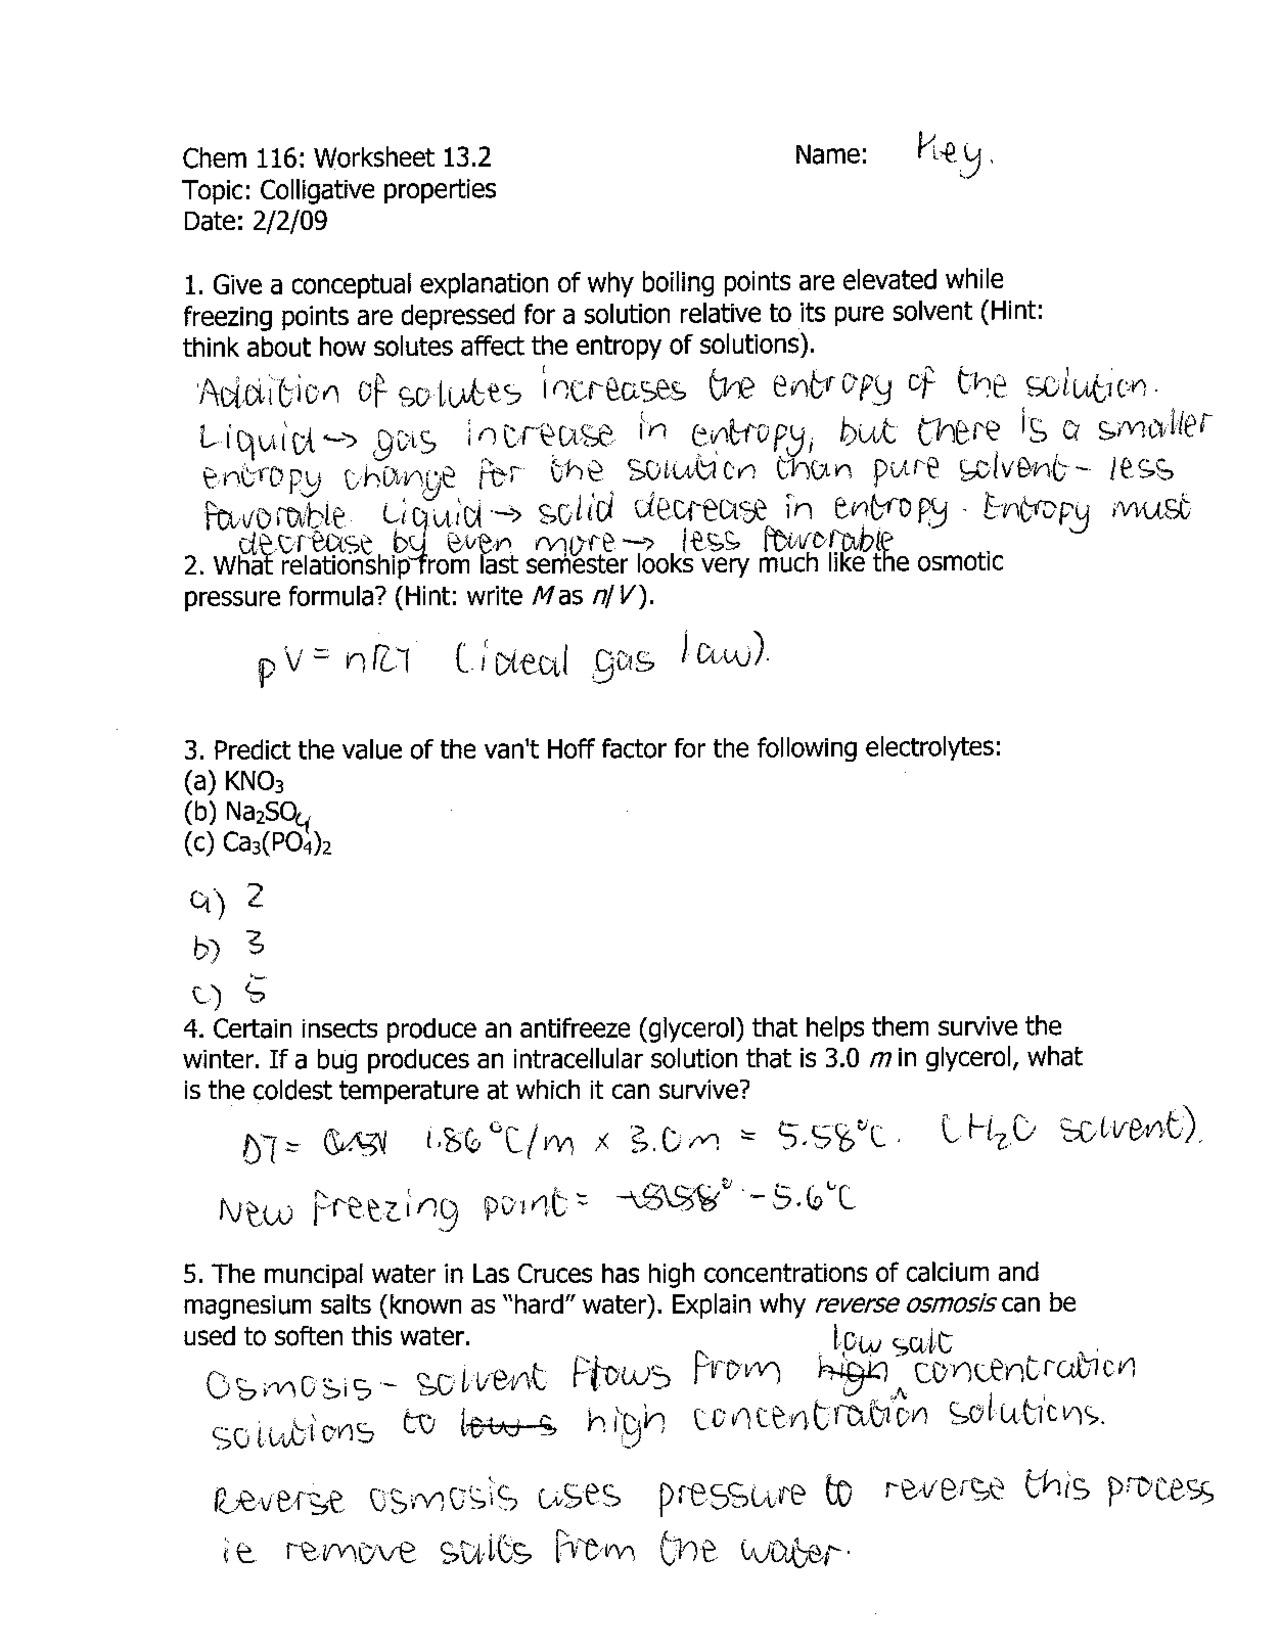 Chem 116: Worksheet 13.2 Name: Key.
Topic: Colligative properties
Date: 2/2/09
1. Give a conceptual explanation of why boiling points are elevated while
freezing points are depressed for a solution relative to its pure solvent (Hint:
think about how solutes affect the entropy of solutions).
Addition of solutes increases the entropy of the solution.
Liquid → gas increase in entropy, but there is a smaller
entropy change for the solution than pure solvent - less
favorable. Liquid → solid decrease in entropy. Entropy must
decrease by even more → less favorable
2. What relationship from last semester looks very much like the osmotic
pressure formula? (Hint: write M as n/V).
pV = nRT (ideal gas law).
3. Predict the value of the van't Hoff factor for the following electrolytes:
(a) KNO3
(b) Na2SO4
(c) Ca3(PO4)2
a) 2
b) 3
c) 5
4. Certain insects produce an antifreeze (glycerol) that helps them survive the
winter. If a bug produces an intracellular solution that is 3.0 m in glycerol, what
is the coldest temperature at which it can survive?
DT = 1.86°C/m x 3.0m = 5.58°C. (H2O solvent).
New freezing point = -5.6°C
5. The muncipal water in Las Cruces has high concentrations of calcium and
magnesium salts (known as "hard" water). Explain why reverse osmosis can be
used to soften this water.
low salt
Osmosis - solvent flows from high concentration
solutions to low s high concentration solutions.
Reverse osmosis uses pressure to reverse this process
ie remove salts from the water.